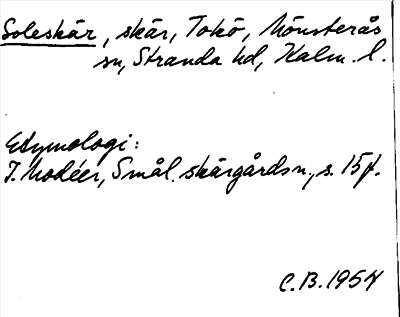 Soleskär, skär, Tokö, Mönsterås
sn, Stranda hd, Kalm. l.
Etymologi:
I. Modéer, Smål. skärgårdsn., s. 15f.
C.B. 1954